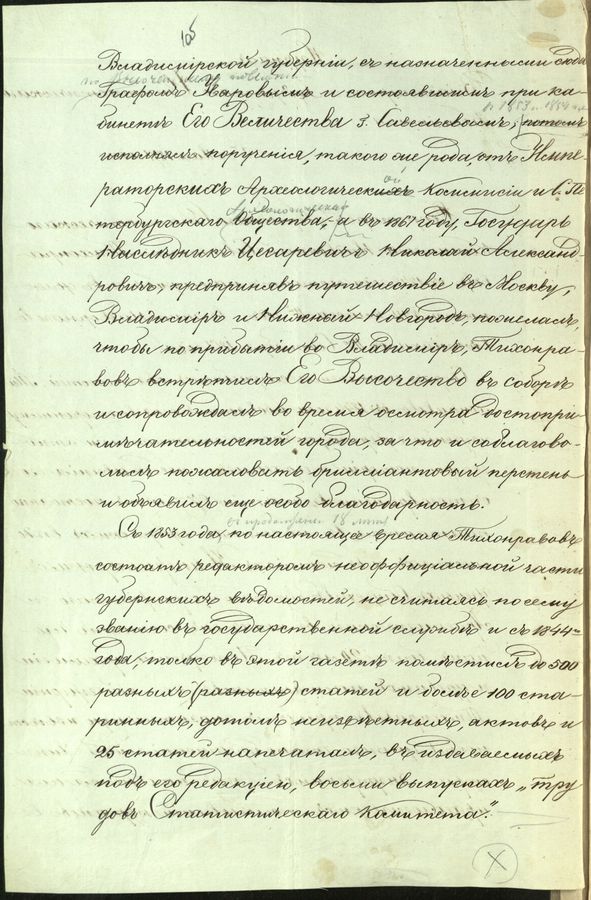 105
Владимірской губерніи, съ назначеннымъ сюда
Графомъ Уваровымъ и состоявшимъ при ка-
въ 1853 и 1854 г.
бинетѣ Его Величества г. Савельевымъ; потомъ
исполнялъ порученія, такого же рода, отъ Импе-
ой
раторскихъ Археологическихъ Коммисіи и С. Пе
Археологическаго
тербургскаго Общества, а въ 1867 году, Государь
Наслѣдникъ Цесаревичъ Николай Александ-
ровичъ, предпринявъ путешествіе въ Москву,
Владиміръ и Нижній-Новгородъ, пожелалъ,
чтобы по прибытіи во Владиміръ, Тихонра-
вовъ встрѣтилъ Его Высочество въ соборѣ
и сопровождалъ во время осмотра достопри-
мѣчательностей города, за что и соблагово-
лилъ пожаловать брилліантовый перстень
и объявилъ еще особо благодарность.
въ продолженіи 18 лѣтъ
Съ 1853 года по настоящее время Тихонравовъ
состоитъ редакторомъ неоффиціальной части
губернскихъ вѣдомостей, не считаясь по сему
званію въ государственной службѣ и съ 1844-
года, только въ этой газетѣ помѣстилъ до 500
разныхъ (разныхъ) статей и болѣе 100 ста-
ринныхъ, дотолѣ неизвѣстныхъ, актовъ и
25 статей напечаталъ, въ издаваемыхъ
подъ его редакціею, восьми выпускахъ „Тру
довъ Статистическаго Комитета".
X